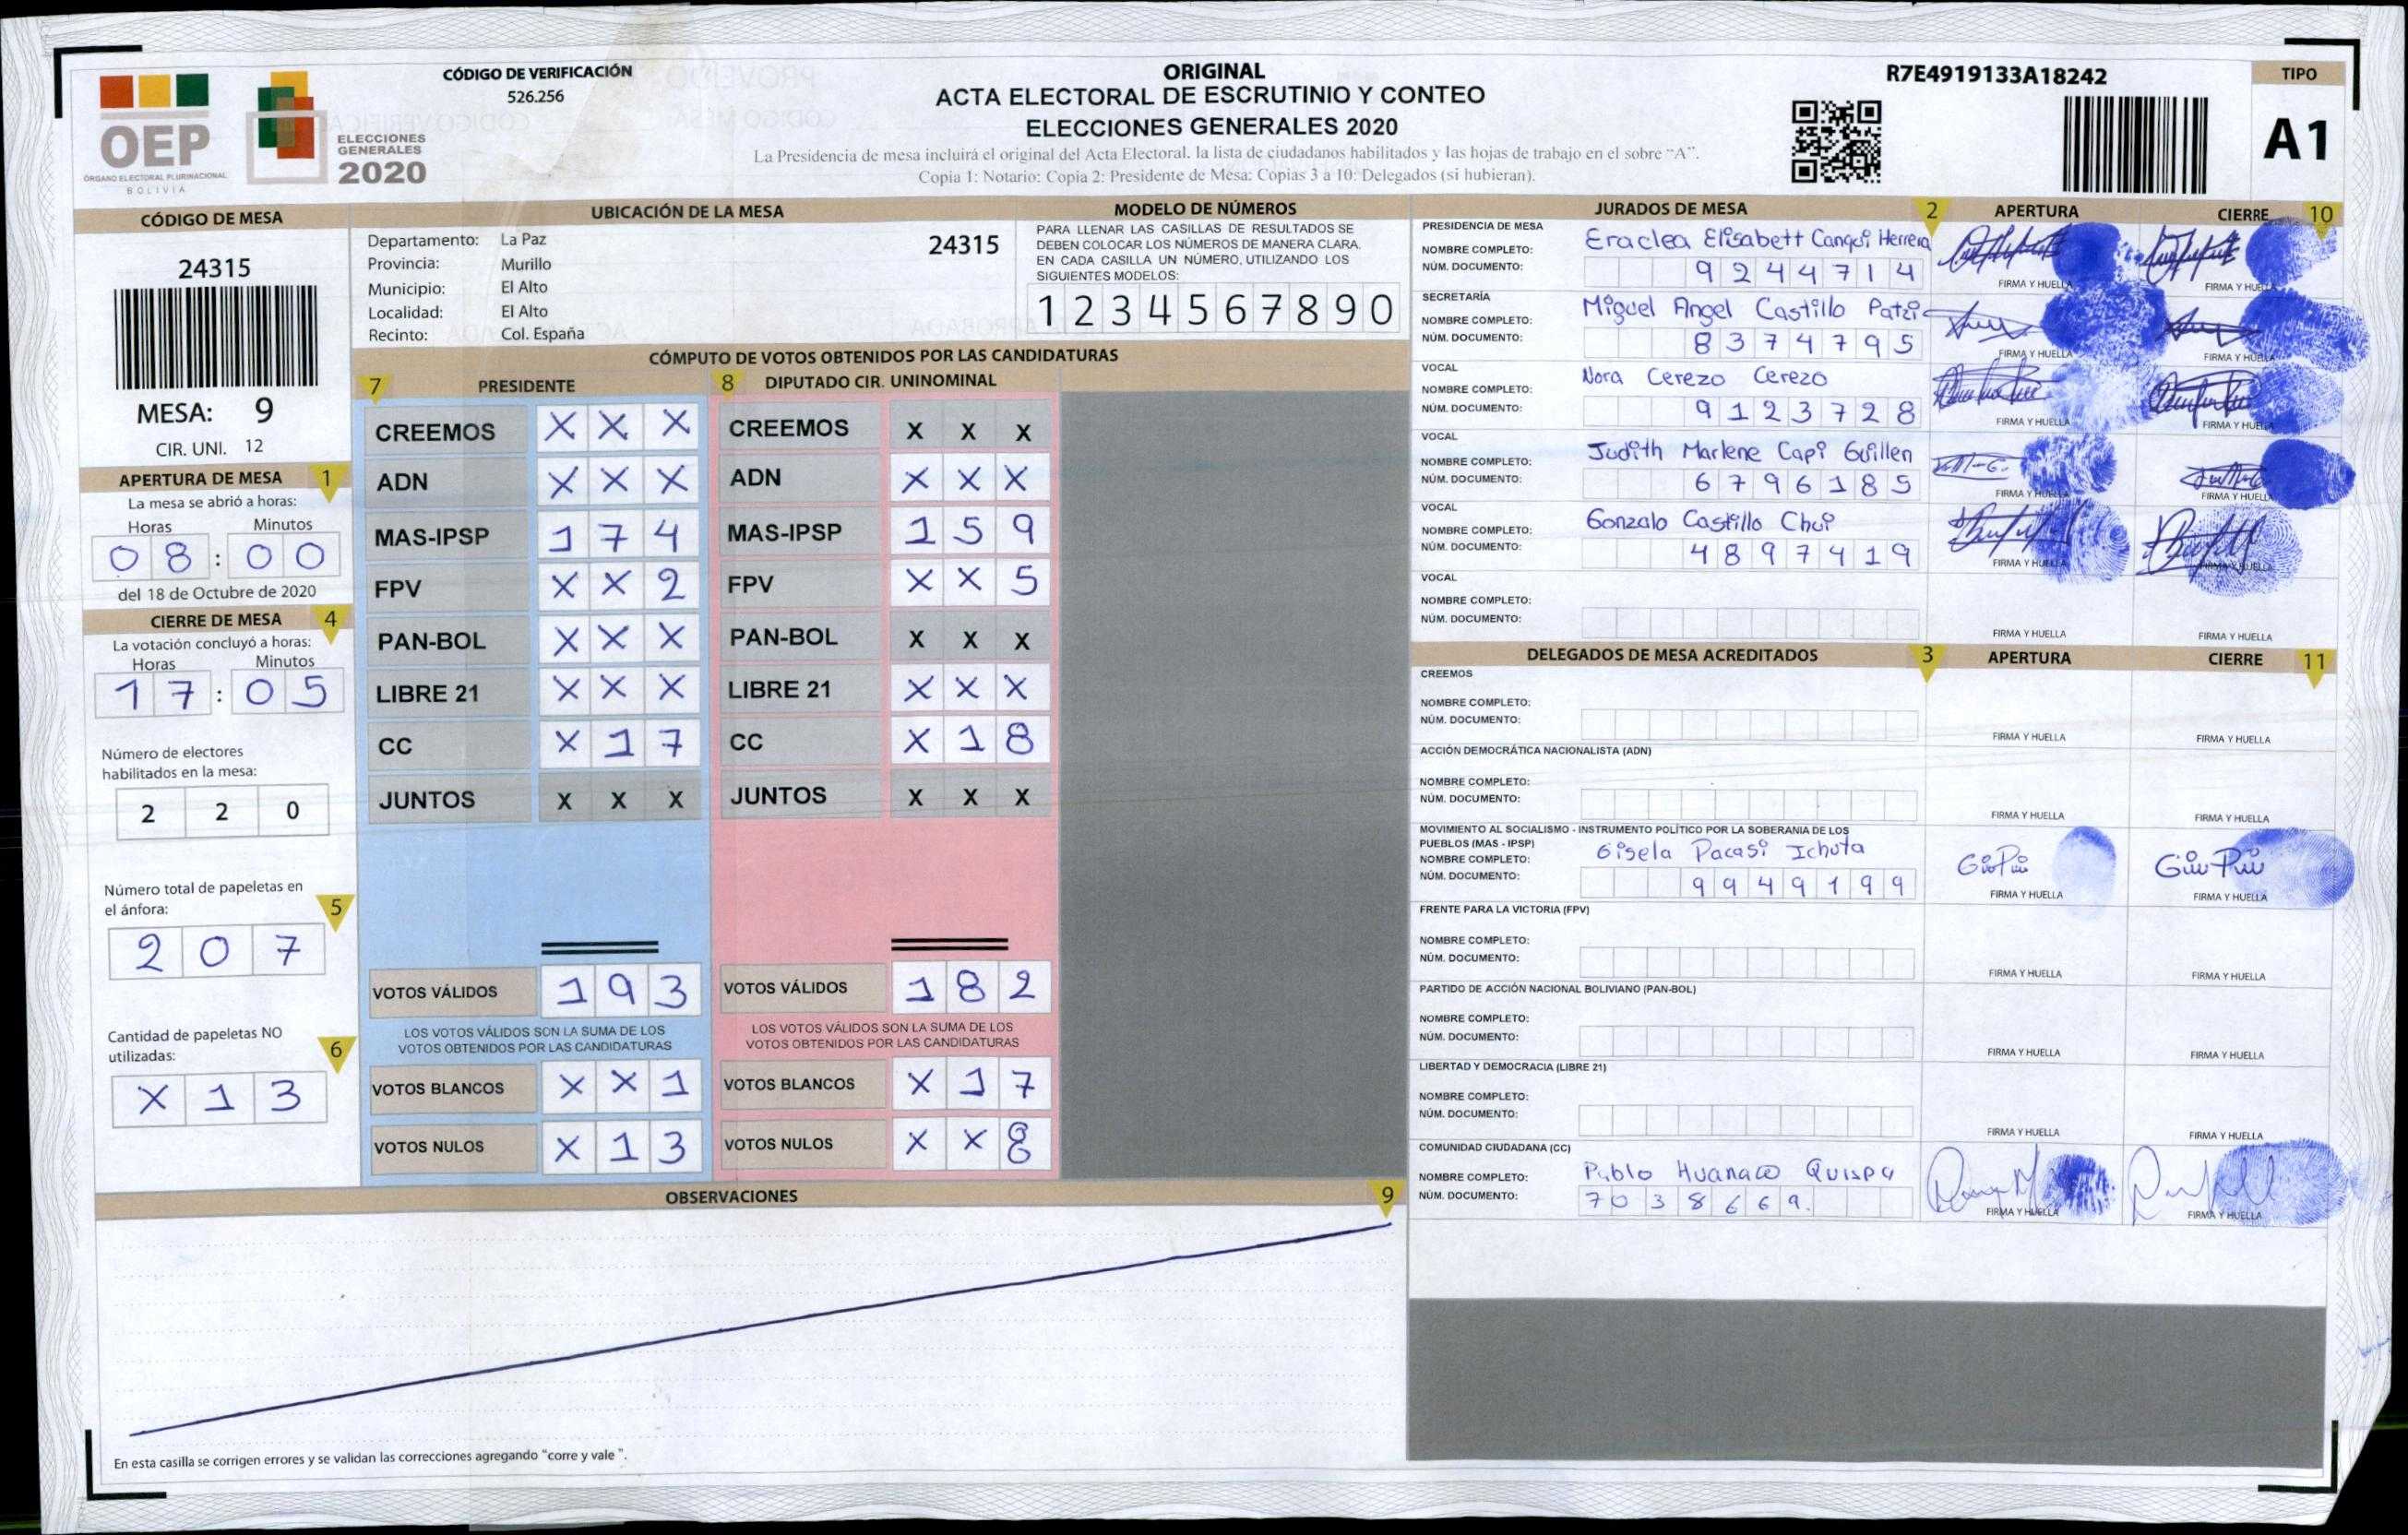 CÓDIGO DE VERIFICACIÓN
526.256
OEP
ÓRGANO ELECTORAL PLURINACIONAL
BOLIVIA
ELECCIONES
GENERALES
2020
ORIGINAL
ACTA ELECTORAL DE ESCRUTINIO Y CONTEO
ELECCIONES GENERALES 2020
La Presidencia de mesa incluirá el original del Acta Electoral. la lista de ciudadanos habilitados y las hojas de trabajo en el sobre “A”.
Copia 1: Notario: Copia 2: Presidente de Mesa: Copias 3 a 10: Delegados (si hubieran).
R7E4919133A18242
TIPO
A1
CÓDIGO DE MESA
24315
MESA: 9
CIR. UNI. 12
APERTURA DE MESA 1
La mesa se abrió a horas:
Horas Minutos
08:00
del 18 de Octubre de 2020
CIERRE DE MESA 4
La votación concluyó a horas:
Horas Minutos
17:05
Número de electores
habilitados en la mesa:
2 2 0
Número total de papeletas en
el ánfora: 5
2 0 7
Cantidad de papeletas NO
utilizadas: 6
X 1 3
UBICACIÓN DE LA MESA
Departamento: La Paz 24315
Provincia: Murillo
Municipio: El Alto
Localidad: El Alto
Recinto: Col. España
MODELO DE NÚMEROS
PARA LLENAR LAS CASILLAS DE RESULTADOS SE
DEBEN COLOCAR LOS NÚMEROS DE MANERA CLARA.
EN CADA CASILLA UN NÚMERO, UTILIZANDO LOS
SIGUIENTES MODELOS:
1 2 3 4 5 6 7 8 9 0
CÓMPUTO DE VOTOS OBTENIDOS POR LAS CANDIDATURAS
7 PRESIDENTE 8 DIPUTADO CIR. UNINOMINAL
CREEMOS X X X CREEMOS X X X
ADN X X X ADN X X X
MAS-IPSP 1 7 4 MAS-IPSP 1 5 9
FPV X X 2 FPV X X 5
PAN-BOL X X X PAN-BOL X X X
LIBRE 21 X X X LIBRE 21 X X X
CC X 1 7 CC X 1 8
JUNTOS X X X JUNTOS X X X
VOTOS VÁLIDOS 1 9 3 VOTOS VÁLIDOS 1 8 2
LOS VOTOS VÁLIDOS SON LA SUMA DE LOS LOS VOTOS VÁLIDOS SON LA SUMA DE LOS
VOTOS OBTENIDOS POR LAS CANDIDATURAS VOTOS OBTENIDOS POR LAS CANDIDATURAS
VOTOS BLANCOS X X 1 VOTOS BLANCOS X 1 7
VOTOS NULOS X 1 3 VOTOS NULOS X X 8
OBSERVACIONES 9
En esta casilla se corrigen errores y se validan las correcciones agregando “corre y vale ”.
JURADOS DE MESA 2 APERTURA CIERRE 10
PRESIDENCIA DE MESA
NOMBRE COMPLETO: Eraclea Elisabett Canqui Herrera
NÚM. DOCUMENTO: 9244714
FIRMA Y HUELLA FIRMA Y HUELLA
SECRETARÍA
NOMBRE COMPLETO: Miguel Angel Castillo Patzi
NÚM. DOCUMENTO: 8374795
FIRMA Y HUELLA FIRMA Y HUELLA
VOCAL
NOMBRE COMPLETO: Nora Cerezo Cerezo
NÚM. DOCUMENTO: 9123728
FIRMA Y HUELLA FIRMA Y HUELLA
VOCAL
NOMBRE COMPLETO: Judith Marlene Capi Guillen
NÚM. DOCUMENTO: 6796185
FIRMA Y HUELLA FIRMA Y HUELLA
VOCAL
NOMBRE COMPLETO: Gonzalo Castillo Chui
NÚM. DOCUMENTO: 4897419
FIRMA Y HUELLA FIRMA Y HUELLA
VOCAL
NOMBRE COMPLETO:
NÚM. DOCUMENTO:
FIRMA Y HUELLA FIRMA Y HUELLA
DELEGADOS DE MESA ACREDITADOS 3 APERTURA CIERRE 11
CREEMOS
NOMBRE COMPLETO:
NÚM. DOCUMENTO:
FIRMA Y HUELLA FIRMA Y HUELLA
ACCIÓN DEMOCRÁTICA NACIONALISTA (ADN)
NOMBRE COMPLETO:
NÚM. DOCUMENTO:
FIRMA Y HUELLA FIRMA Y HUELLA
MOVIMIENTO AL SOCIALISMO - INSTRUMENTO POLÍTICO POR LA SOBERANIA DE LOS
PUEBLOS (MAS - IPSP)
NOMBRE COMPLETO: Gisela Pacasi Ichuta
NÚM. DOCUMENTO: 9949199
FIRMA Y HUELLA FIRMA Y HUELLA
FRENTE PARA LA VICTORIA (FPV)
NOMBRE COMPLETO:
NÚM. DOCUMENTO:
FIRMA Y HUELLA FIRMA Y HUELLA
PARTIDO DE ACCIÓN NACIONAL BOLIVIANO (PAN-BOL)
NOMBRE COMPLETO:
NÚM. DOCUMENTO:
FIRMA Y HUELLA FIRMA Y HUELLA
LIBERTAD Y DEMOCRACIA (LIBRE 21)
NOMBRE COMPLETO:
NÚM. DOCUMENTO:
FIRMA Y HUELLA FIRMA Y HUELLA
COMUNIDAD CIUDADANA (CC)
NOMBRE COMPLETO: Pablo Huanaco Quispe
NÚM. DOCUMENTO: 7038669.
FIRMA Y HUELLA FIRMA Y HUELLA